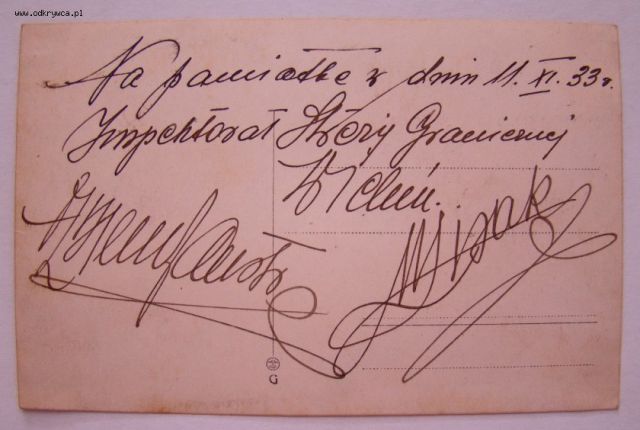 www.odkrywca.pl
Na pamiątkę z dnia 11. XI. 33 r.
Inspektorat Straży Granicznej
Wieluń.
G